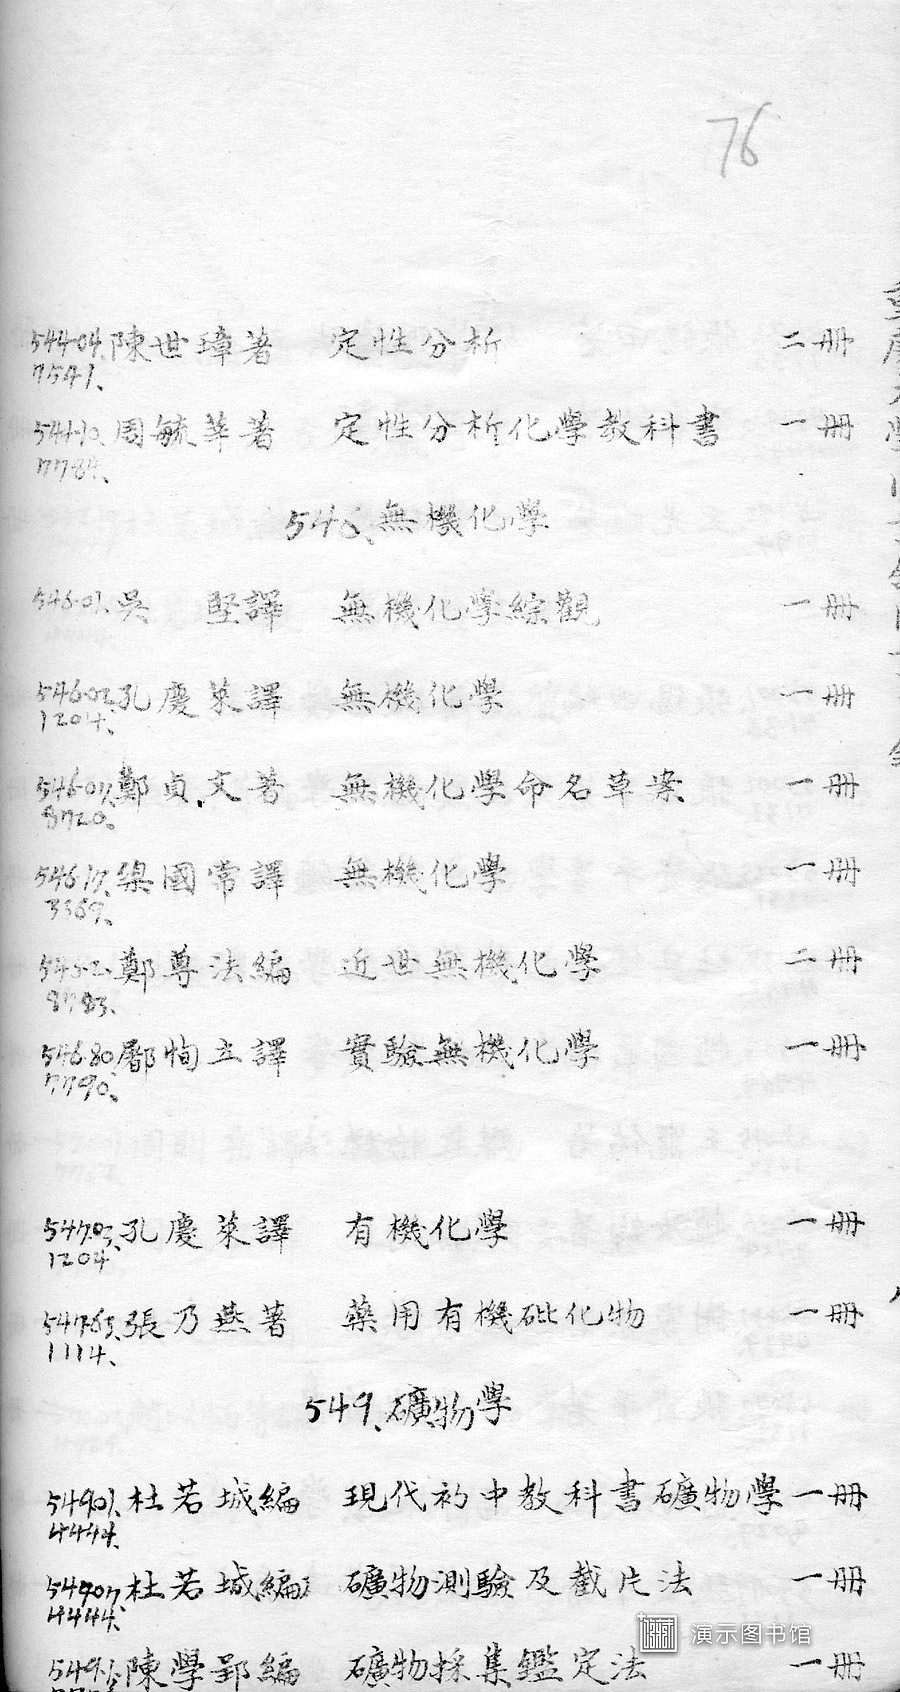 76
544.04. 陳世璋著 定性分析 二册
7541.
544.10. 周毓莘著 定性分析化學教科書 一册
7784.
540. 無機化學
546.01. 吳 堅譯 無機化學綜觀 一册
546.02. 孔慶萊譯 無機化學 一册
1204.
546.07. 鄭貞文著 無機化學命名草案 一册
8720.
546.17. 梁國常譯 無機化學 一册
3369.
546.2. 鄭尊法編 近世無機化學 二册
8783.
546.80. 鄢恂立譯 實驗無機化學 一册
7790.
547.03. 孔慶萊譯 有機化學 一册
1204
547.63. 張乃燕著 藥用有機砒化物 一册
1114.
549. 礦物學
549.01. 杜若城編 現代初中教科書礦物學 一册
4444.
549.07. 杜若城編 礦物測驗及截片法 一册
4444.
549.1. 陳學郢編 礦物採集鑑定法 一册
演示图书馆